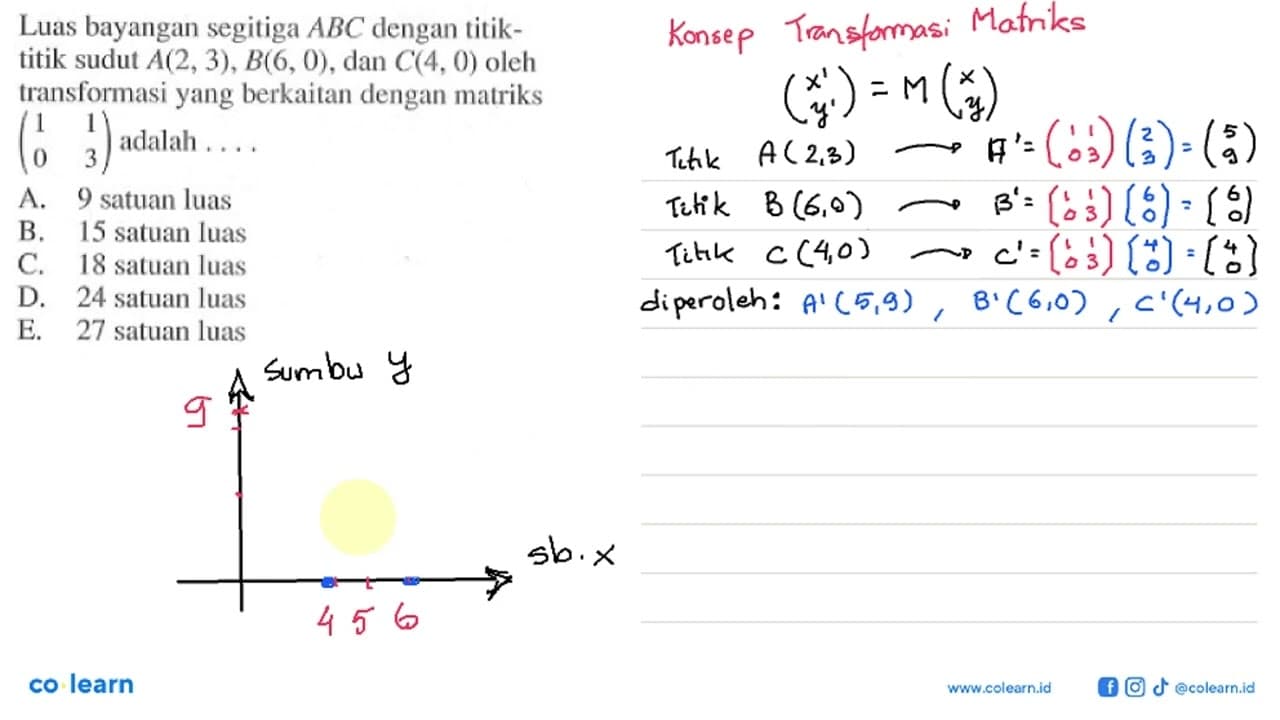 Luas bayangan segitiga ABC dengan titik-
titik sudut A(2, 3), B(6, 0), dan C(4, 0) oleh
transformasi yang berkaitan dengan matriks
(1 1
0 3) adalah . . . .
A. 9 satuan luas
B. 15 satuan luas
C. 18 satuan luas
D. 24 satuan luas
E. 27 satuan luas
Konsep Transformasi Matriks
(x' y') = M (x y)
Titik A(2,3) → A' = (1 1 0 3) (2 3) = (5 9)
Titik B(6,0) → B' = (1 1 0 3) (6 0) = (6 0)
Titik C(4,0) → C' = (1 1 0 3) (4 0) = (4 0)
diperoleh: A'(5,9) , B'(6,0) , C'(4,0)
Sumbu y
9
sb. x
4 5 6
co learn
www.colearn.id
@colearn.id